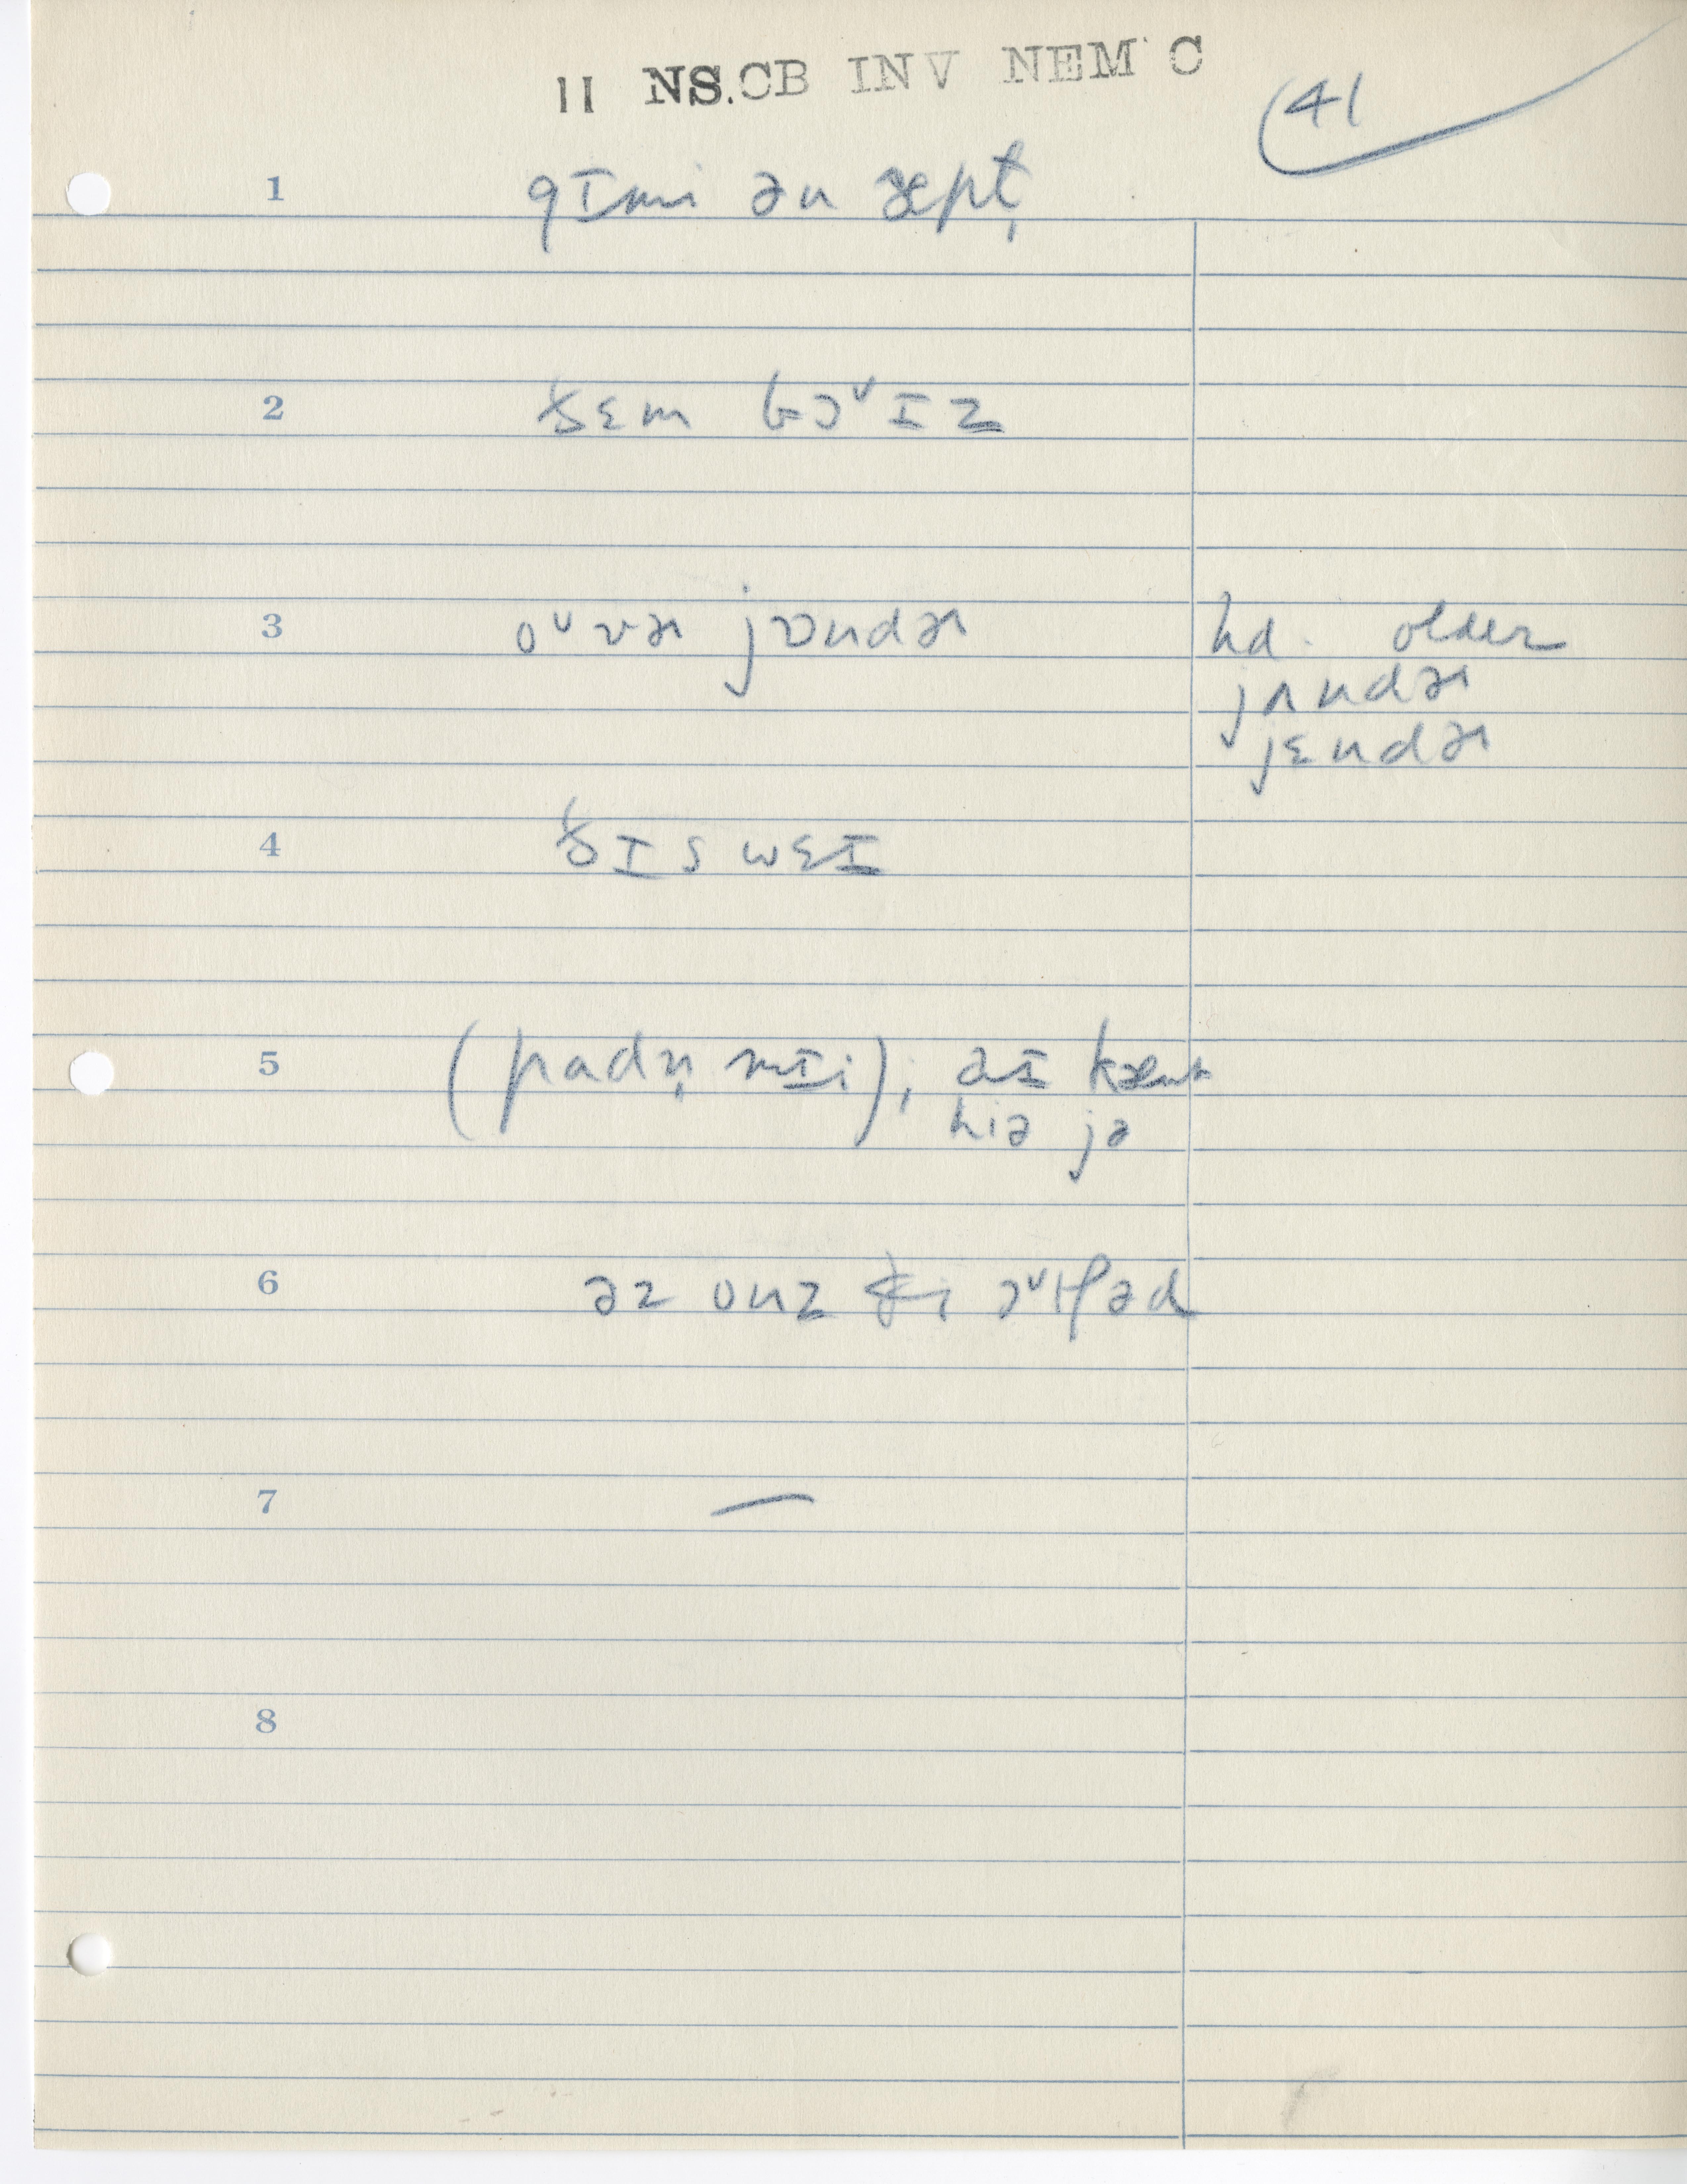 11 NS.CB INV NEM C
(41
1 gɪmi ən æpt̩
2 ðɛm bɔᶸɪz
3 oᶸvɚ jɒndɚ hd. older
jʌndɚ
jɛndɚ
4 ðɪs wɛɪ
5 (padn̩ mɪi); aɪ kænt
hiə jə
6 az onz ði
7 —
8